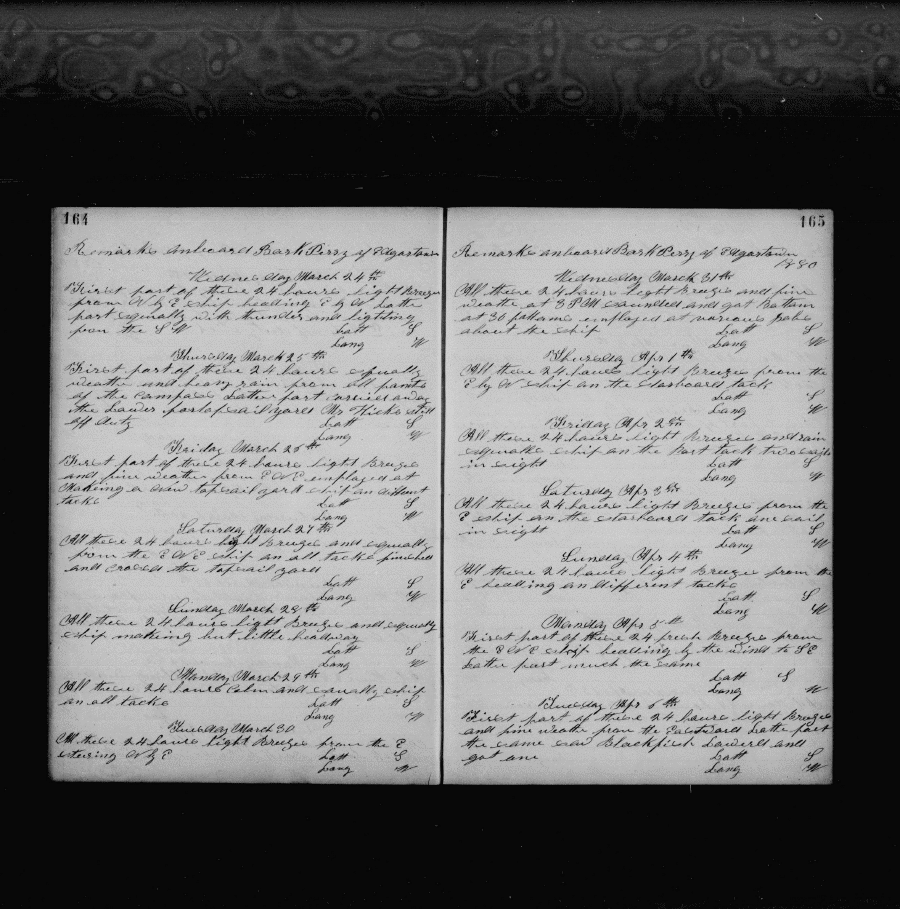 164
Remarks onboard Bark Perry of Edgartown
Wednesday March 24th
First part of these 24 hours light Breezes
from N by E ship heading E by N Latter
part squally with thunder and lighting
from the S W Latt S
Long W
Thursday March 25th
First part of these 24 hours squally
weathr and heavy rain from all parts
of the compass Latter part carried away
the Lower portopsail yard Mr Hicks still
off duty Latt S
Long W
Friday March 26th
First part of these 24 hours light Breezes
and fine weathr from E N E employed at
Makeing a new topsail yard ship on different
tacks Latt S
Long W
Saturday March 27th
All these 24 hours light Breezes and squally
from the E N E ship on all tacks finished
and crosed the topsail yard
Latt S
Long W
Sunday March 28th
All these 24 hours light Breezes and squally
ship making but little headway
Latt S
Long W
Monday March 29th
All these 24 hours Calm and squally ship
on all tacks Latt S
Long W
Tuesday March 30
All these 24 hours light Breezes from the E
steering N by E Latt S
Long W
165
Remarks onboard Bark Perry of Edgartown
1880
Wednesday March 31th
All these 24 hours light Breezes and fine
weathr at 3 P M sounded and got Bottom
at 30 fathoms employed at various jobs
about the ship Latt S
Long W
Thursday Apr 1th
All these 24 hours light Breezes from the
E by N ship on the starboard tack
Latt S
Long W
Friday Apr 2
All these 24 hours light Breezes and rain
squalls ship on the Port tack two sails
in sight Latt S
Long W
Saturday Apr 3
All these 24 hours light Breezes from the
E ship on the starboard tack one sail
in sight Latt S
Long W
Sunday Apr 4th
All these 24 hours light Breezes from the
E heading on different tacks
Latt S
Long W
Monday Apr 5th
First part of these 24 fresh Breezes from
the E N E ship heading by the wind to S E
Latter part much the same
Latt S
Long W
Tuesday Apr 6th
First part of these 24 hours light Breezes
and fine weathr from the Eastward Latter part
the same saw Blackfish Lowerd and
got one Latt S
Long W